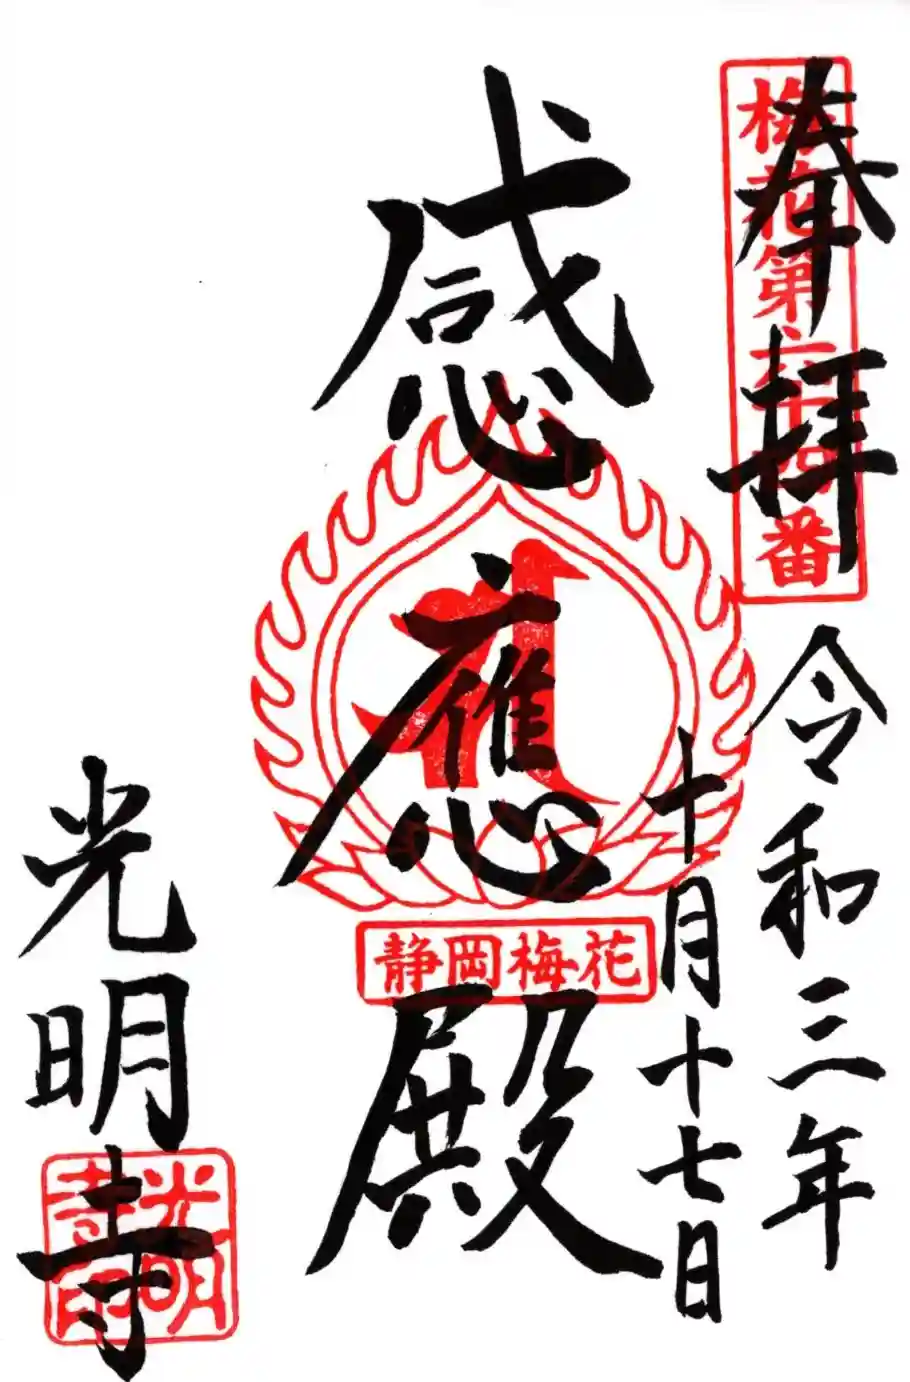 奉拝
梅花第六十四番
令和三年
十月十七日
感應殿
静岡梅花
光明寺
光明寺印